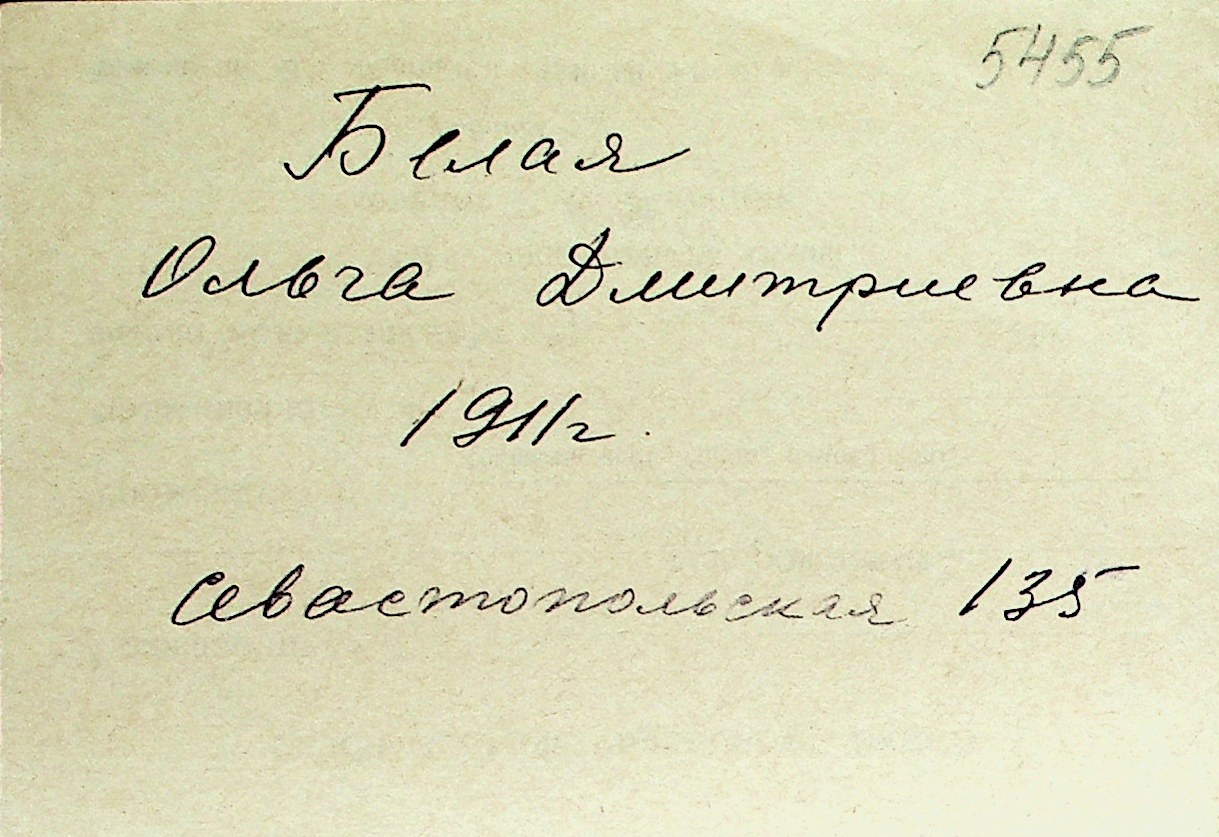 5455
Белая
Ольга Дмитриевна
1911г.
Севастопольская 135